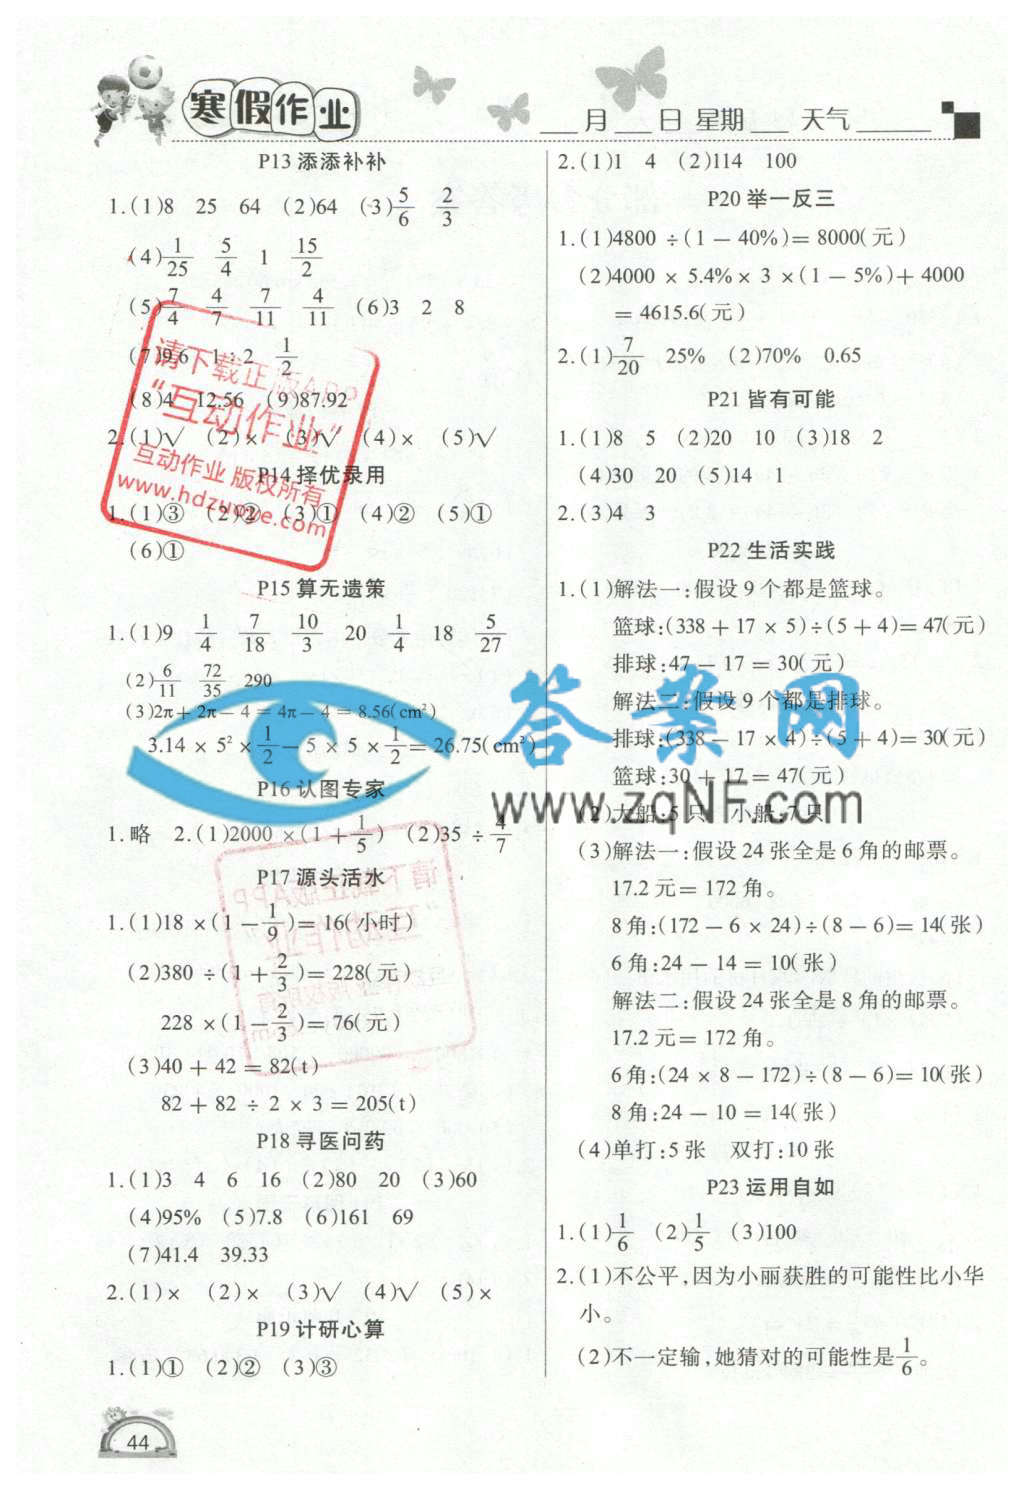 寒假作业
___月___日 星期___ 天气______
P13 添添补补
1.(1)8 25 64 (2)64 (3)5/6 2/3
(4)1/25 5/4 1 15/2
(5)7/4 4/7 7/11 4/11 (6)3 2 8
(7)9.6 1:2 1/2
(8)4 12.56 (9)87.92
2.(1)√ (2)× (3)√ (4)× (5)√
P14 择优录用
1.(1)③ (2)② (3)① (4)② (5)①
(6)①
P15 算无遗策
1.(1)9 1/4 7/18 10/3 20 1/4 18 5/27
(2)6/11 72/35 290
(3)2π+2π-4=4π-4=8.56(cm²)
3.14×5²×1/2-5×5×1/2=26.75(cm²)
P16 认图专家
1.略 2.(1)2000×(1+1/5) (2)35÷4/7
P17 源头活水
1.(1)18×(1-1/9)=16(小时)
(2)380÷(1+2/3)=228(元)
228×(1-2/3)=76(元)
(3)40+42=82(t)
82+82÷2×3=205(t)
P18 寻医问药
1.(1)3 4 6 16 (2)80 20 (3)60
(4)95% (5)7.8 (6)161 69
(7)41.4 39.33
2.(1)× (2)× (3)√ (4)√ (5)×
P19 计研心算
1.(1)① (2)② (3)③
2.(1)1 4 (2)114 100
P20 举一反三
1.(1)4800÷(1-40%)=8000(元)
(2)4000×5.4%×3×(1-5%)+4000
=4615.6(元)
2.(1)7/20 25% (2)70% 0.65
P21 皆有可能
1.(1)8 5 (2)20 10 (3)18 2
(4)30 20 (5)14 1
2.(3)4 3
P22 生活实践
1.(1)解法一:假设9个都是篮球。
篮球:(338+17×5)÷(5+4)=47(元)
排球:47-17=30(元)
解法二:假设9个都是排球。
排球:(338-17×4)÷(5+4)=30(元)
篮球:30+17=47(元)
(2)大船:5只 小船:7只
(3)解法一:假设24张全是6角的邮票。
17.2元=172角。
8角:(172-6×24)÷(8-6)=14(张)
6角:24-14=10(张)
解法二:假设24张全是8角的邮票。
17.2元=172角。
6角:(24×8-172)÷(8-6)=10(张)
8角:24-10=14(张)
(4)单打:5张 双打:10张
P23 运用自如
1.(1)1/6 (2)1/5 (3)100
2.(1)不公平,因为小丽获胜的可能性比小华
小。
(2)不一定输,她猜对的可能性是1/6。
44
请下载正版APP
“互动作业”
互动作业 版权所有
www.hdzuoye.com
答案网
www.zqNF.com